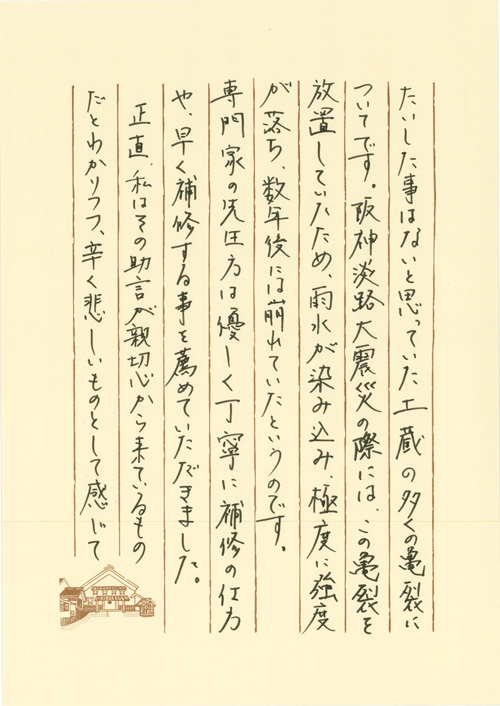 たいした事はないと思っていた土蔵の多くの亀裂に
ついてです。阪神淡路大震災の際には、この亀裂を
放置していたため、雨水が染み込み、極度に強度
が落ち、数年後には崩れていたというのです。
専門家の先生方は優しく丁寧に補修の仕方
や、早く補修する事を薦めていただきました。
正直、私はその助言が親切心から来ているもの
だとわかりつつ、辛く悲しいものとして感じて